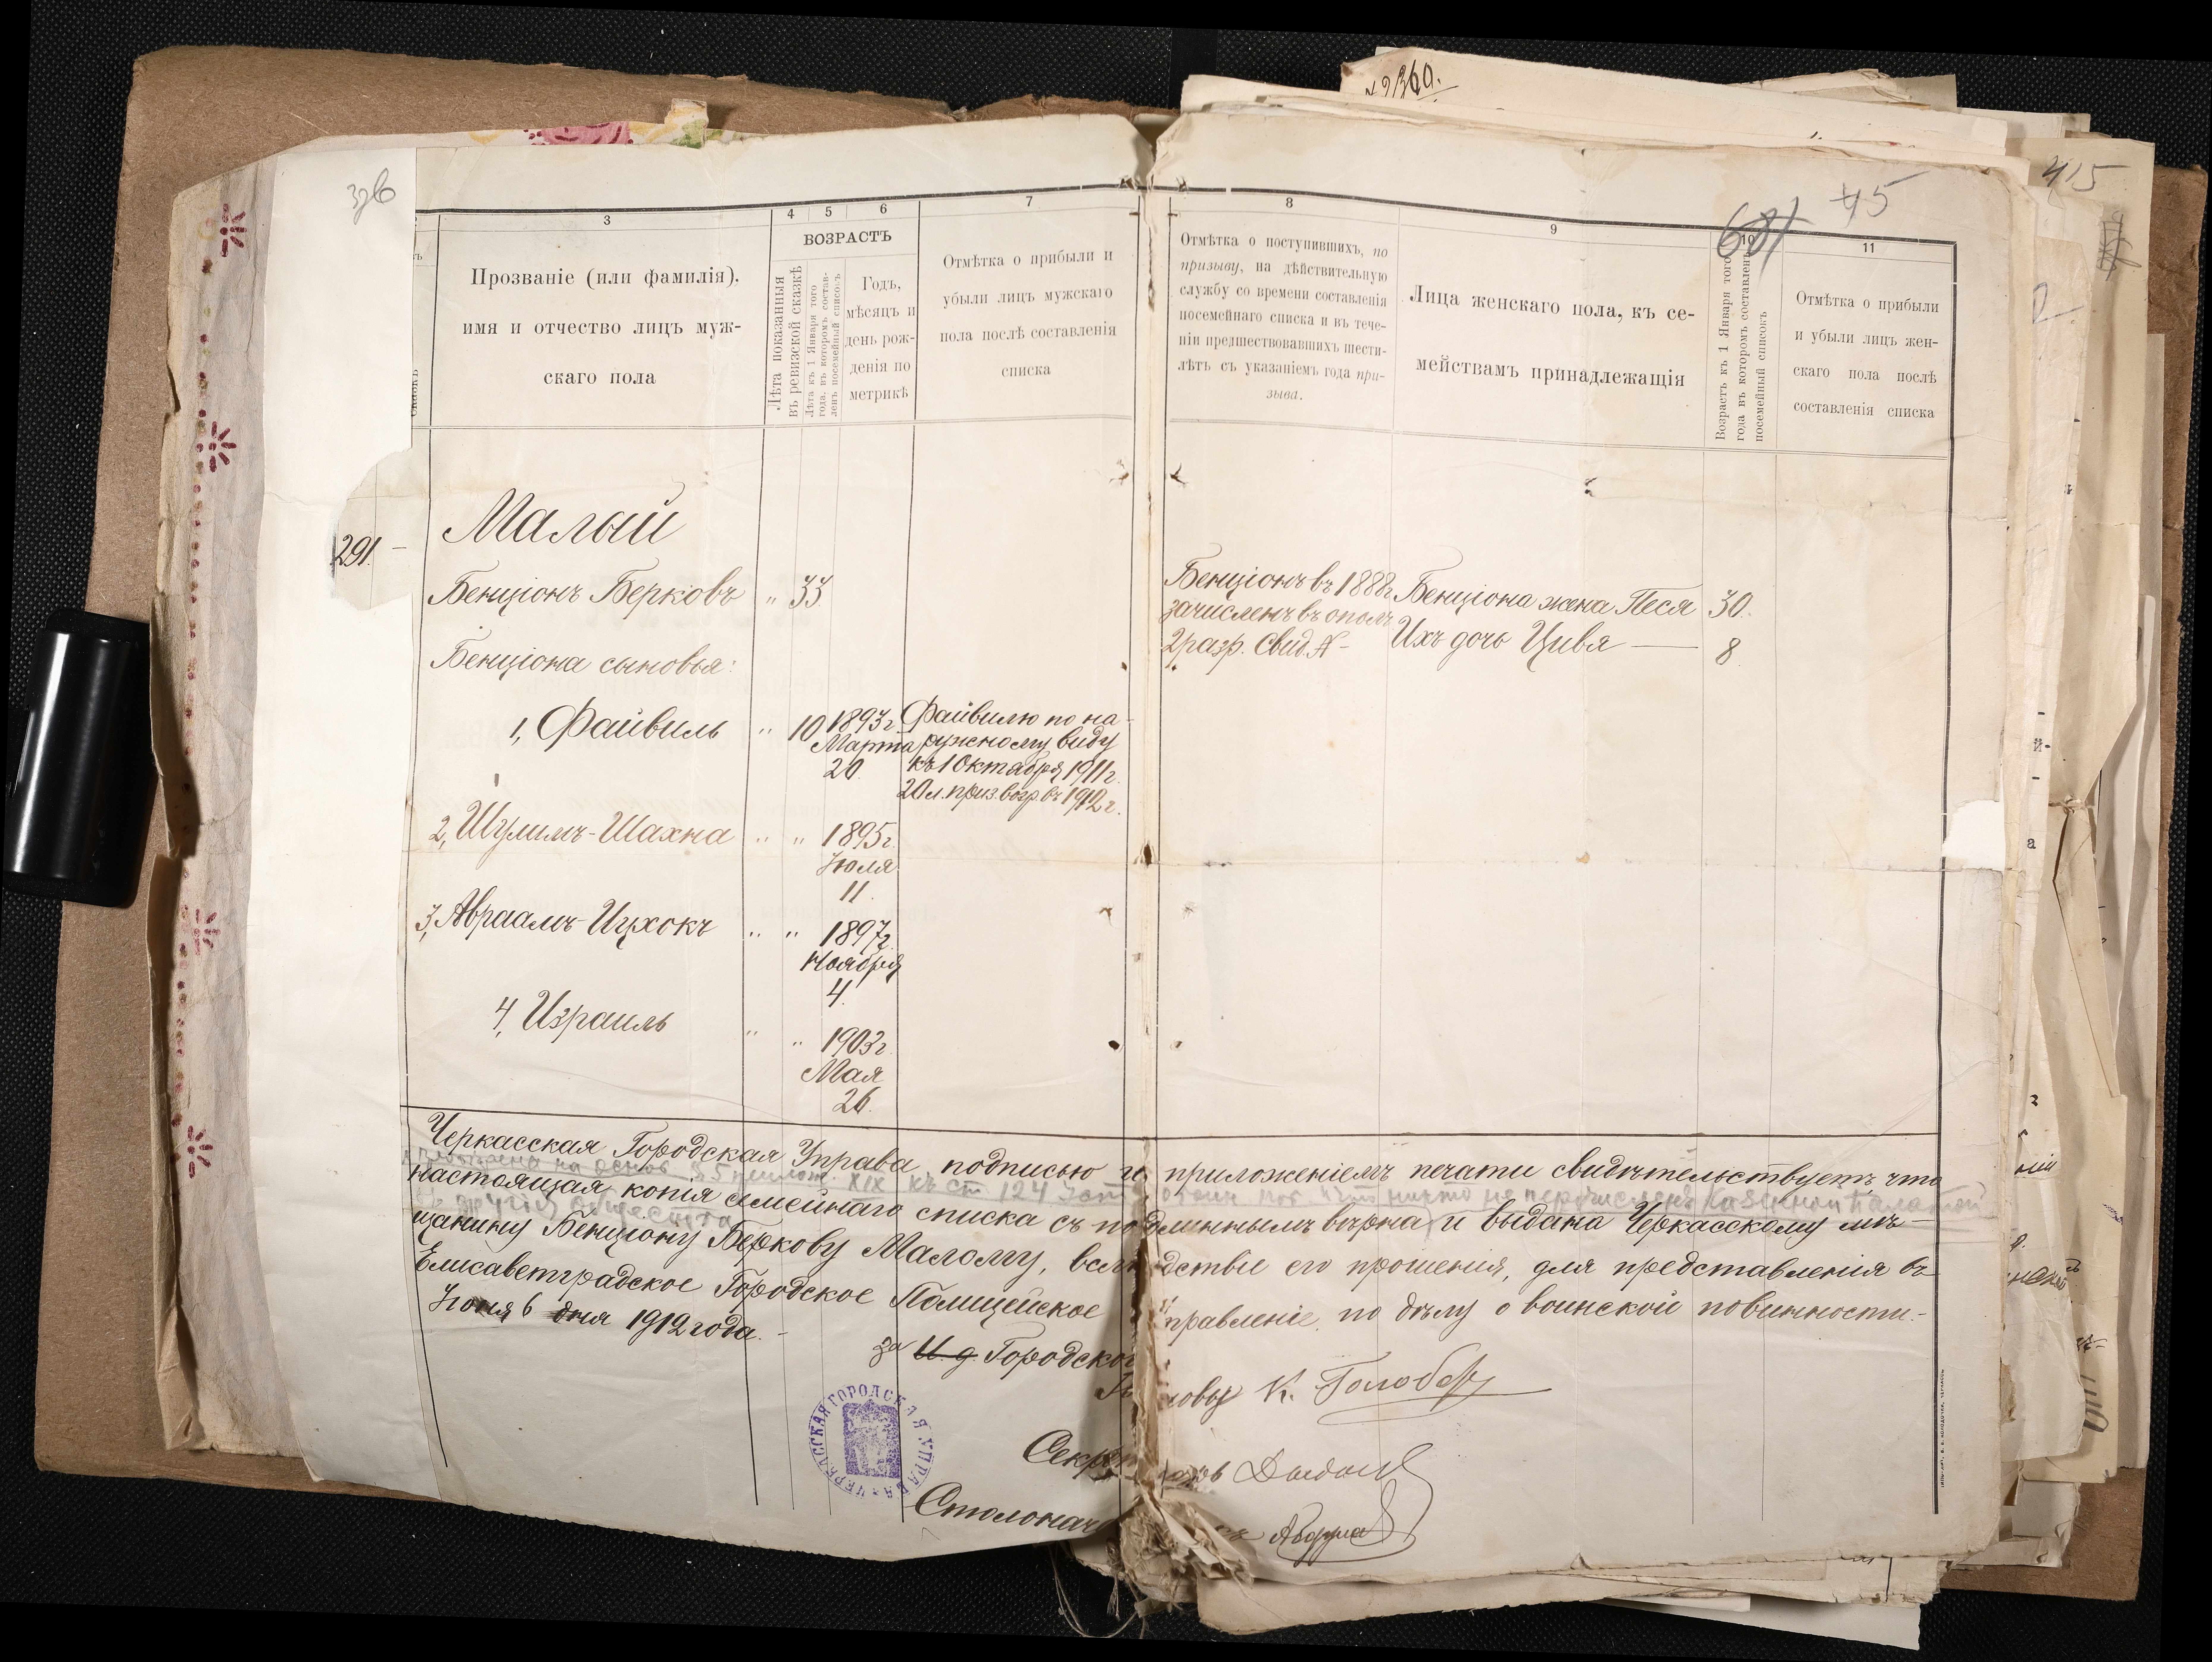 № 2360.
376
415
681 45
3
4
5
6
7
8
9
10
11
Прозваніе (или фамилія),
имя и отчество лицъ муж-
скаго пола
ВОЗРАСТЪ
Лѣта показанныя
въ ревизской сказкѣ
Лѣта къ 1 Января того
года, въ которомъ состав-
ленъ посемейный списокъ
Годъ,
мѣсяцъ и
день рож-
денія по
метрикѣ
Отмѣтка о прибыли и
убыли лицъ мужскаго
пола послѣ составленія
списка
Отмѣтка о поступившихъ, по
призыву, на дѣйствительную
службу со времени составленія
посемейнаго списка и въ тече-
ніи предшествовавшихъ шести-
лѣтъ съ указаніемъ года при-
зыва.
Лица женскаго пола, къ се-
мействамъ принадлежащія
Возрастъ къ 1 Января того
года въ которомъ составленъ
посемейный списокъ
Отмѣтка о прибыли
и убыли лицъ жен-
скаго пола послѣ
составленія списка
291. –
Малый
Бенціонъ Берковъ " 33
Бенціона сыновья:
1, Файвиль " 10 1893г.
Марта
20.
Файвилю по на-
ружному виду
къ 1 Октября 1911г.
20 л. приз. возр. въ 1912 г.
2, Шулимъ-Шахна " " 1895г.
Іюля
11.
3, Авраамъ-Ицхокъ " " 1897г.
Ноября
4.
4, Израиль " " 1903г.
Мая
26.
Бенціонъ въ 1888г.
зачисленъ въ ополч.
2 разр. Свид. № –
Бенціона жена Песя 30.
Ихъ дочь Цивя — 8.
Черкасская Городская Управа, подписью и приложеніемъ печати свидѣтельствуетъ что
на основ. § 5 прилож. XIX къ ст. 124 никто не перечисленъ Казенной Палатой
настоящая копія семейнаго списка съ подлиннымъ вѣрна, и выдана Черкасскому мѣ-
въ другія общества
щанину Бенціону Беркову Малому, вслѣдствіе его прошенія, для представленія въ
Елисаветградское Городское Полицейское Управленіе, по дѣлу о воинской повинности.-
Іюня 6 дня 1912 года.-
за И. д. Городского
Головы К. Голобор
Секретарь
Столонач
ЧЕРКАССКАЯ ГОРОДСКАЯ УПРАВА